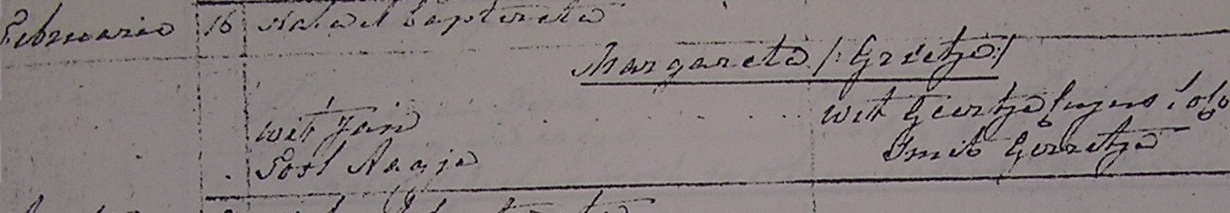 Februario 16 Nata et baptizata
Margareta /: Grietje :/
Wit Jan
Post Aagje
Wit Geertje loco
Smit Gerretje